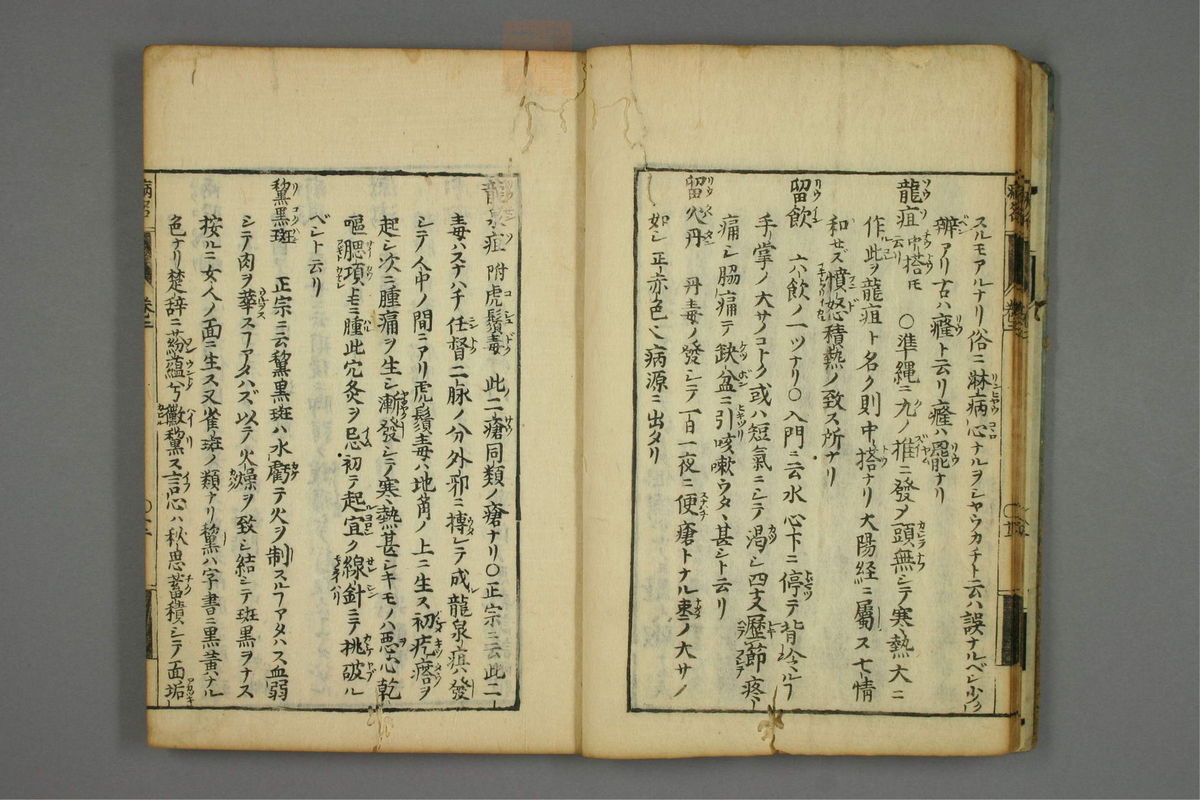 スルモアルナリ俗ニ淋病心ナルヲシヤウカチト云ハ誤ナルベシ少シ
辨アリ古ハ癃ト云リ癃ハ罷ナリ
龍疽 中搭トモ云リ ○準縄ニ九ノ推ニ發ヲ頭無シテ寒熱大ニ
作此ヲ龍疽ト名ク則中搭ナリ大陽経ニ屬ス七情
和セス憤怒積熱ノ致ス所ナリ
留飲 六飲ノ一ツナリ○入門ニ云水心下ニ停テ背冷ルヿ
手掌ノ大サノコトク或ハ短氣ニシテ渇シ四支歷節疼
痛シ脇痛テ缺盆ニ引咳嗽ウタヽ甚シト云リ
留火丹 丹毒ノ發シテ一百一夜ニ便瘡トナル棗ノ大サノ
如シ正赤色也病源ニ出タリ
龍泉疽 附虎鬚毒 此二瘡同類ノ瘡ナリ○正宗ニ云此二
毒ハスナハチ任督二脉ノ分外邪ニ摶レテ成龍泉疽發
シテ人中ノ間ニアリ虎鬚毒ハ地角ノ上ニ生ス初疙瘩ヲ
起シ次ニ腫痛ヲ生シ漸發シテ寒熱甚シキモノハ悪心乾
嘔腮項トモニ腫此穴灸ヲ忌初テ起宜ク線針ニテ挑破ル
ベシト云リ
黧黑斑 正宗ニ云黧黑斑ハ水虧テ火ヲ制スルヿアタハス血弱
シテ肉ヲ華スヿアタハズ以テ火燥ヲ致シ結シテ斑黒ヲナス
按ルニ女人ノ面ニ生ス又雀斑ノ類アリ黧ハ字書ニ黒黄ナル
色ナリ楚辞ニ蒶蘊兮黴黧ス言心ハ秋思蓄積シテ面垢